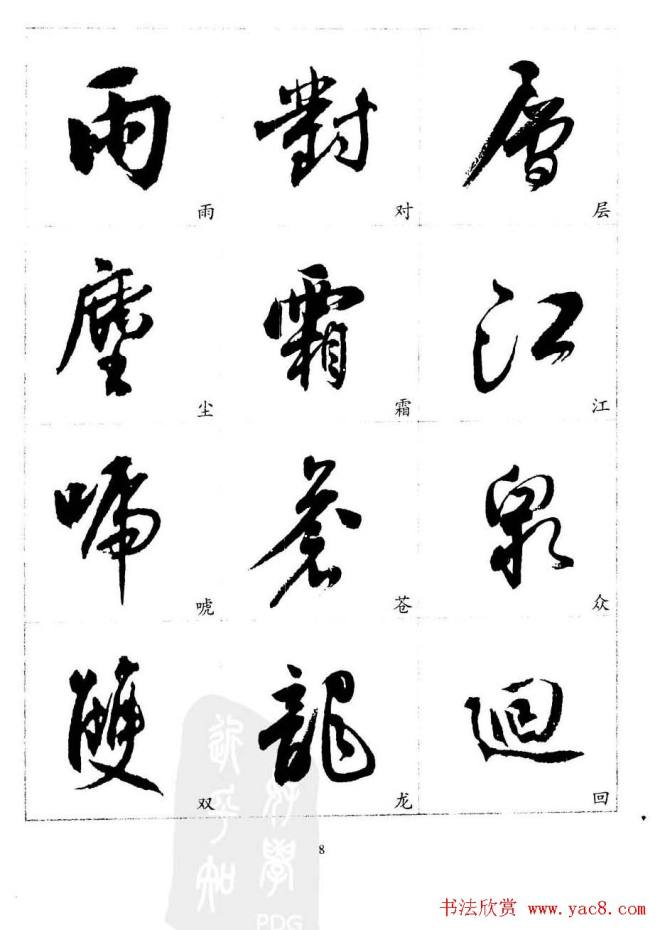 雨 對 層
雨 对 层
塵 霜 江
尘 霜 江
啼 蒼 泉
唬 苍 众
雙 龍 迴
双 龙 回
8
PDG
书法欣赏 www.yac8.com